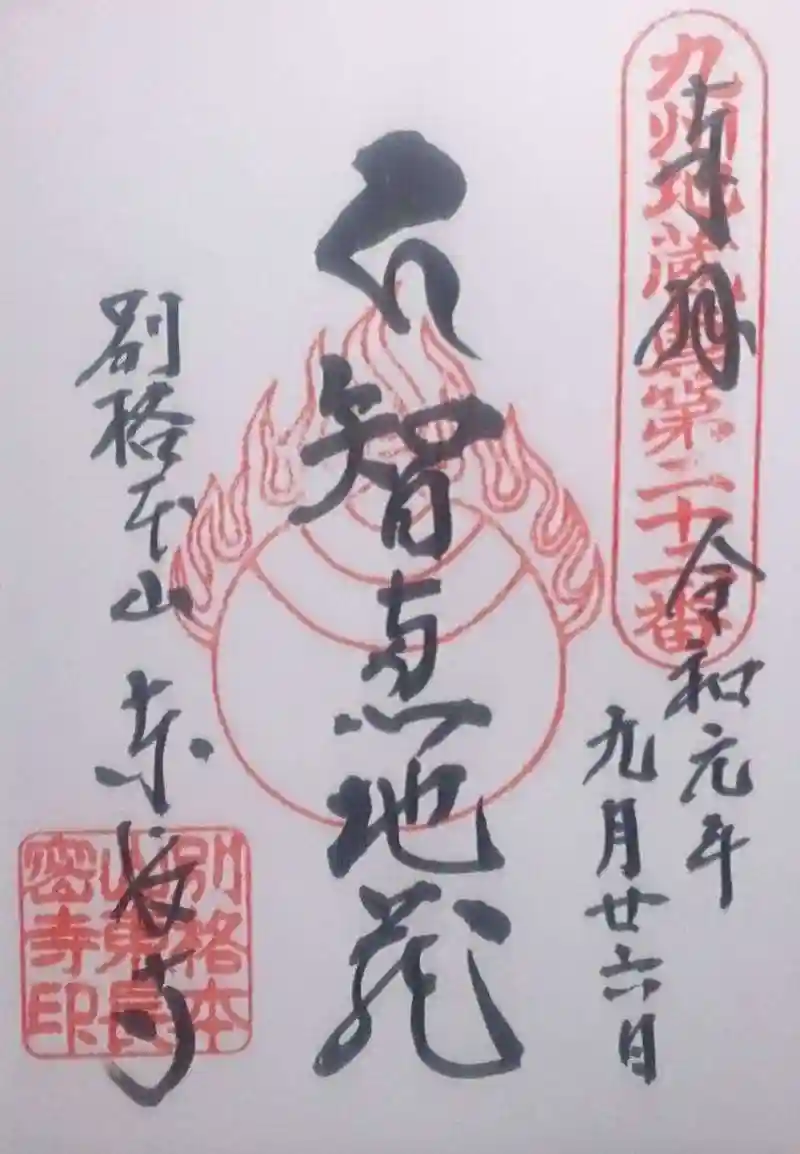 九州地蔵尊第二十二番
奉拝
令和元年
九月廿六日
智恵地蔵
別格本山 東長寺
別格本
山東長
密寺印